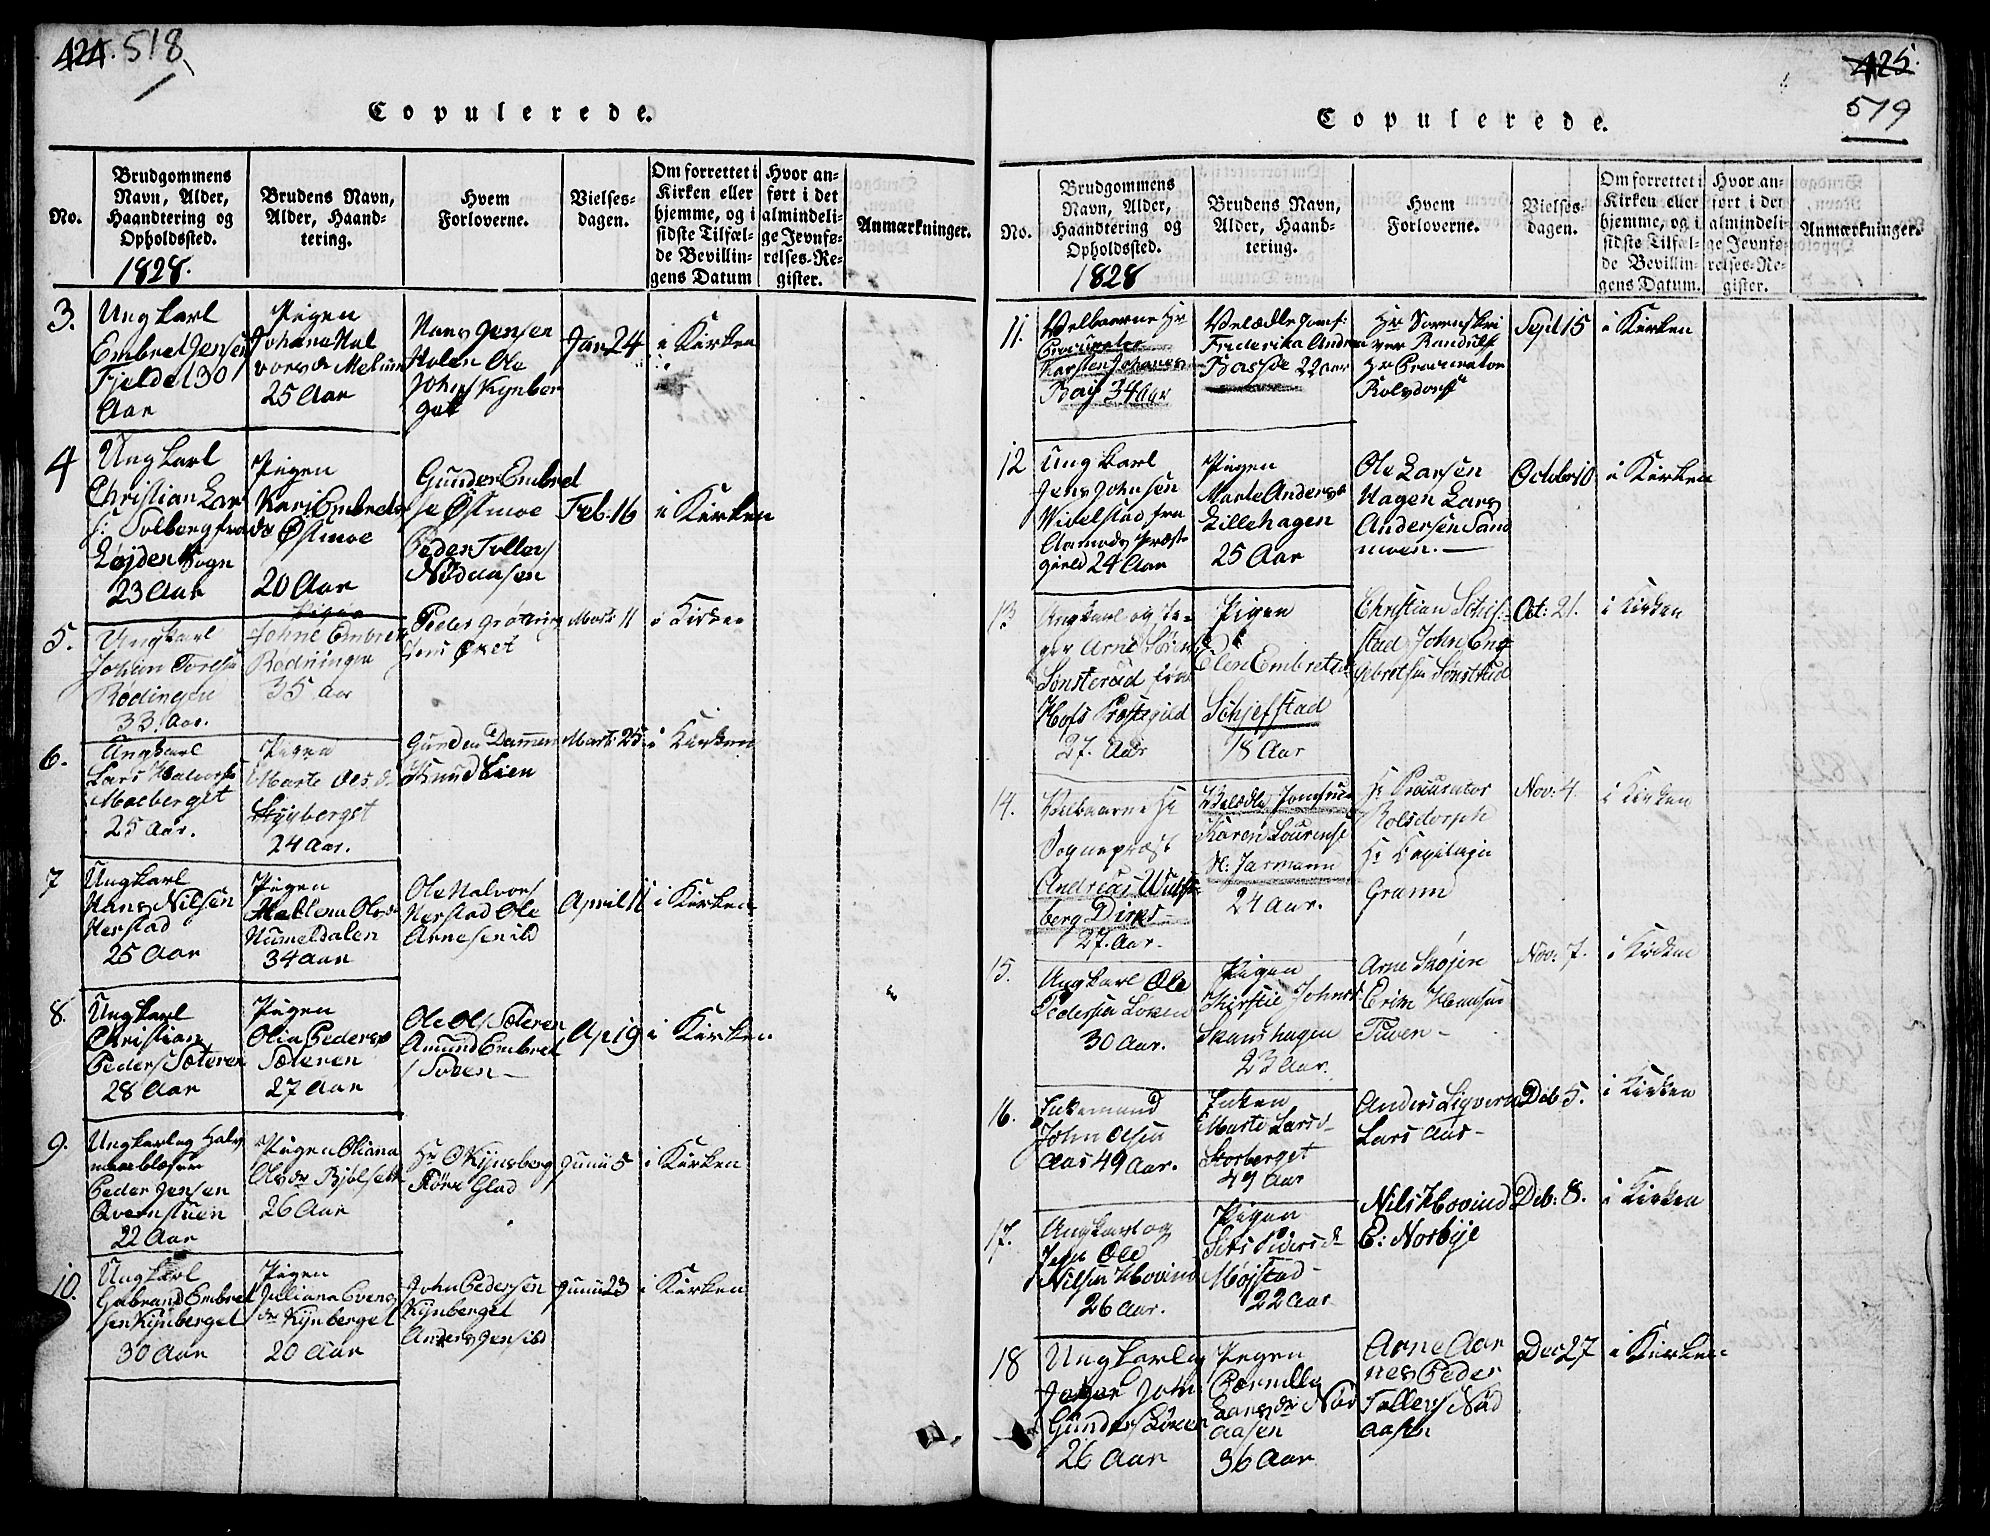 424. 518
Copulerede.
No.
Brudgommens
Navn, Alder,
Haandtering og
Opholdssted.
1828.
Brudens Navn,
Alder, Haand-
tering.
Hvem
Forloverne.
Vielses-
dagen.
Om forrettet i
Kirken eller
hjemme, og i
sidste Tilfæl-
de Bevillin-
gens Datum
Hvor an-
ført i det
almindeli-
ge Jevnfø-
relses-Re-
gister.
Anmærkninger.
3.
Ungkarl
Embret Jensen
Fjeldet 30
Aar
Pigen
Johane Hal
vorsdr Melum
25 Aar
Hans Jensen
Holen Ole
Johns Kynber
get
Jan 24
i Kirken
4
Ungkarl
Christian Lar
s: Solberg fra
Løjden Sogn
23 Aar
Pigen
Kari Embrets
dr Østmoe
20 Aar
Gunder Embret
se Østmoe
Peder Tollevs
Nødaasen
Feb: 16
i Kirken
5.
Ungkarl
Johan Toresen
Rødningen
33. Aar.
Pigen
Johne Embret
Rødningen
35 Aar
Peder Grøtting
Jens Øket
Marts 11
i Kirken
6.
Ungkarl
Lars Halvors
Moeberget
25 Aar.
Pigen
Marte Olsd.
Skyberget
24 Aar.
Gunder Dammen
Knud Lien
Marts 25
i Kirken
7
Ungkarl
Hans Nilsen
Herstad
25 Aar
Pigen
Mallena Olsdr
Humeldalen
34 Aar
Ole Halvors
Herstad Ole
Arnesen ild
April 11
i Kirken
8.
Ungkarl
Christian
Peders Sæteren
28 Aar
Pigen
Olia Pedersdr
Sæteren
27 Aar
Ole Ols Sæteren
Amund Embret
s Soeen
Ap 19
i Kirken
9.
Ungkarl og Halv
Peder Jensen
Ovenstuen
22 Aar
Pigen Oliana
Olsdr Bjølset
26 Aar
Hr O Kynsberg
Tore Glad
Junii 5
i Kirken
10.
Ungkarl
Gubrand Embret
sen Kynberget
30 Aar
Pigen
Juliana Evens
dr Kynberget
20 Aar
John Pedersen
Kynberget
Anders Jens ild
Junii 23
i Kirken
425.
519
Copulerede.
No.
Brudgommens
Navn, Alder,
Haandtering og
Opholdssted.
1828
Brudens Navn,
Alder, Haand-
tering.
Hvem
Forloverne.
Vielses-
dagen.
Om forrettet i
Kirken eller
hjemme, og i
sidste Tilfæl-
de Bevillin-
gens Datum.
Hvor an-
ført i det
almindeli-
ge Jevnfø-
relses-Re-
gister.
Anmærkninger.
11.
Velbaarne Hr
Procurator
Karsten Johannes
Bay 34 Aar
Velædle Jomf:
Frederika Andrea
Basse 22 Aar
Hr Sorenskri
ver Randulf
Hr Procurator
Rolsdorf
Sept 15
i Kirken
12
Ungkarl
Jens Johnsen
Widelstad fra
Aamods Præst
gield 24 Aar
Pigen
Marte Andersdr
Lillehagen
25 Aar
Ole Larsen
Hagen Lars
Andersen Sand
moen.
October 10
i Kirken
13
Ungkarl og
Arne
Sønsterud fra
Hofs Præstegield
27. Aar
Pigen
Elen Embretsdr
Schjefstad
18 Aar
Christian Schif-
stad John Eng
ebretsen Sønstrud
Oct: 21.
i Kirken
14.
Velbaarne Hr
Sognepræst
Andreas Wulfs
berg Dirks
27. Aar
Velædle Jomfrue
Karen Lourense
H: Jarmann
24 Aar.
Hr Procurator
Rolsdorph
Hr Capitain
Gramm
Nov: 4
i Kirken
15.
Ungkarl Ole
Pedersen Løken
30 Aar.
Pigen
Kirstie Johnsd.
Skanshagen
23 Aar.
Arne Skøjen
Erik Hansen
Tiwen
Nov: 7.
i Kirken
16.
Enkemand
John Olsen
Aas 49 Aar.
Enken
Marte Larsd.
Storberget
49 Aar
Anders Ligvern
Lars Aas
Deb 5.
i Kirken
17.
Ungkarl og
Ole
Nilsen Hovind
26 Aar.
Pigen
Siri Pedersd.
Mojstad
22 Aar
Nils Hovind
E: Norbye
Deb: 8.
i Kirken
18
Ungkarl og
Jeger John
Gunders Løken
26 Aar
Pigen
Pernille
Larsdr Nød
aasen
36 Aar
Arne Aar
nes Peder
Tollevs Nød
aasen
Dec 27
i Kirken